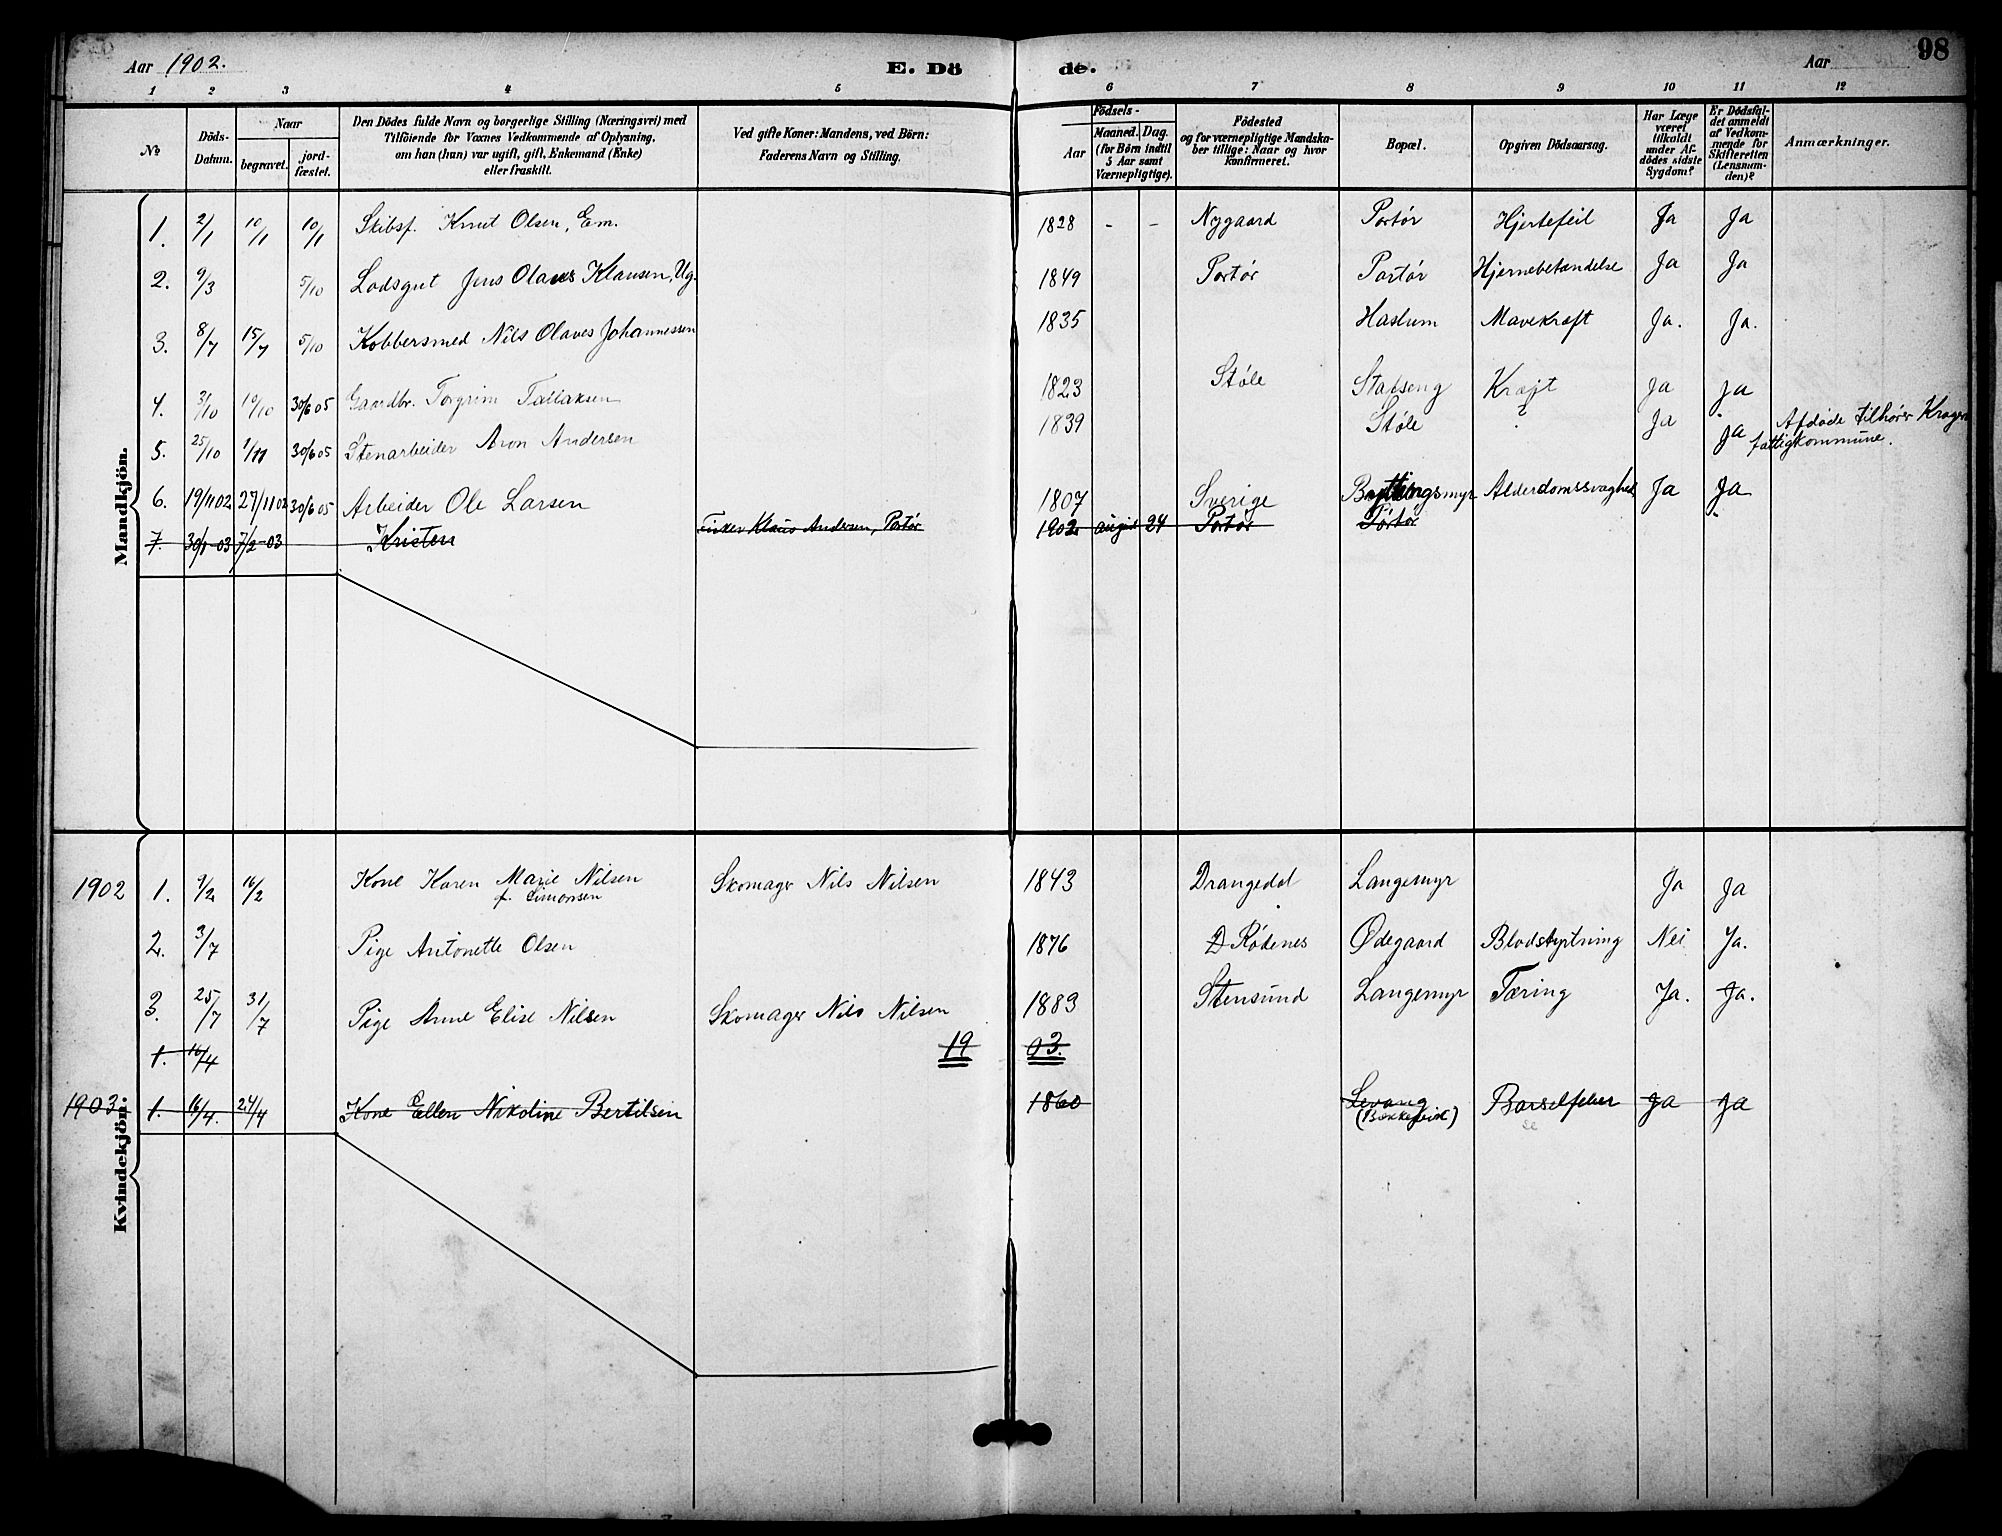 Aar 1902. E. Dö de. Aar 98
1 2 3 4 5 6 7 8 9 10 11 12
No
Döds-Datum.
Naar
begravet.
jord-fæstet.
Den Dödes fulde Navn og borgerlige Stilling (Næringsvei) med
Tilföiende for Voxnes Vedkommende af Oplysning,
om han (hun) var ugift, gift, Enkemand (Enke)
eller fraskilt.
Ved gifte Koner: Mandens, ved Börn:
Faderens Navn og Stilling.
Födsels-
Aar
Maaned. Dag.
(for Börn indtil
5 Aar samt
Værnepligtige).
Födested
og for værnepligtige Mandska-
ber tillige: Naar og hvor
konfirmeret.
Bopæl.
Opgiven Dödsaarsag.
Har Læge
været
tilkaldt
under Af-
dödes sidste
Sygdom?
Er Dödsfal-
det anmeldt
af Vedkom-
mende for
Skifteretten
(Lensman-
den)?
Anmærkninger.
Mandkjön.
1. 2/1 10/1 10/1 Skibsf. Knut Olsen, Em. 1828 - - Nygaard Portør Hjertefeil Ja Ja
2. 9/3 5/10 Lodsgut Jens Olaus Klausen, Ug. 1849 Portør Portør Hjernebetændelse Ja Ja
3. 8/7 15/7 5/10 Kobbersmed Nils Olaves Johannessen 1835 Haslum Mavekræft Ja. Ja.
4. 3/10 10/10 30/6 05 Gaardbr. Torgrim Tallaksen 1823 Støle Stabseng Kræft Ja Ja
5. 25/10 1/11 30/6 05 Stenarbeider Aron Andersen 1839 Støle ? Ja Ja Afdøde tilhører Kragerø
fattigkommune.
6. 19/11 02 27/11 02 30/6 05 Arbeider Ole Larsen 1807 Sverige Alderdomssvaghed Ja Ja
7. 30/1-03 7/2-03 Kristen Fisker Klaus Andersen, Portør 1902 august 24 Portør Portør
Kvindekjön.
1902 1. 9/2 16/2 Kone Karen Marie Nilsen
f. Simonsen Skomager Nils Nilsen 1843 Drangedal Langemyr Ja Ja
2. 3/7 Pige Antonette Olsen 1876 Rødenes Ødegaard Blodstyrtning Nei Ja.
3. 25/7 31/7 Pige Anne Elise Nilsen Skomager Nils Nilsen 1883 Stensund Langemyr Tæring Ja. Ja.
1. 16/4 19 03.
1903 1. 16/4. 24/4 Kone Ellen Nikoline Bertilsen 1860 Levang Barselfeber Ja Ja